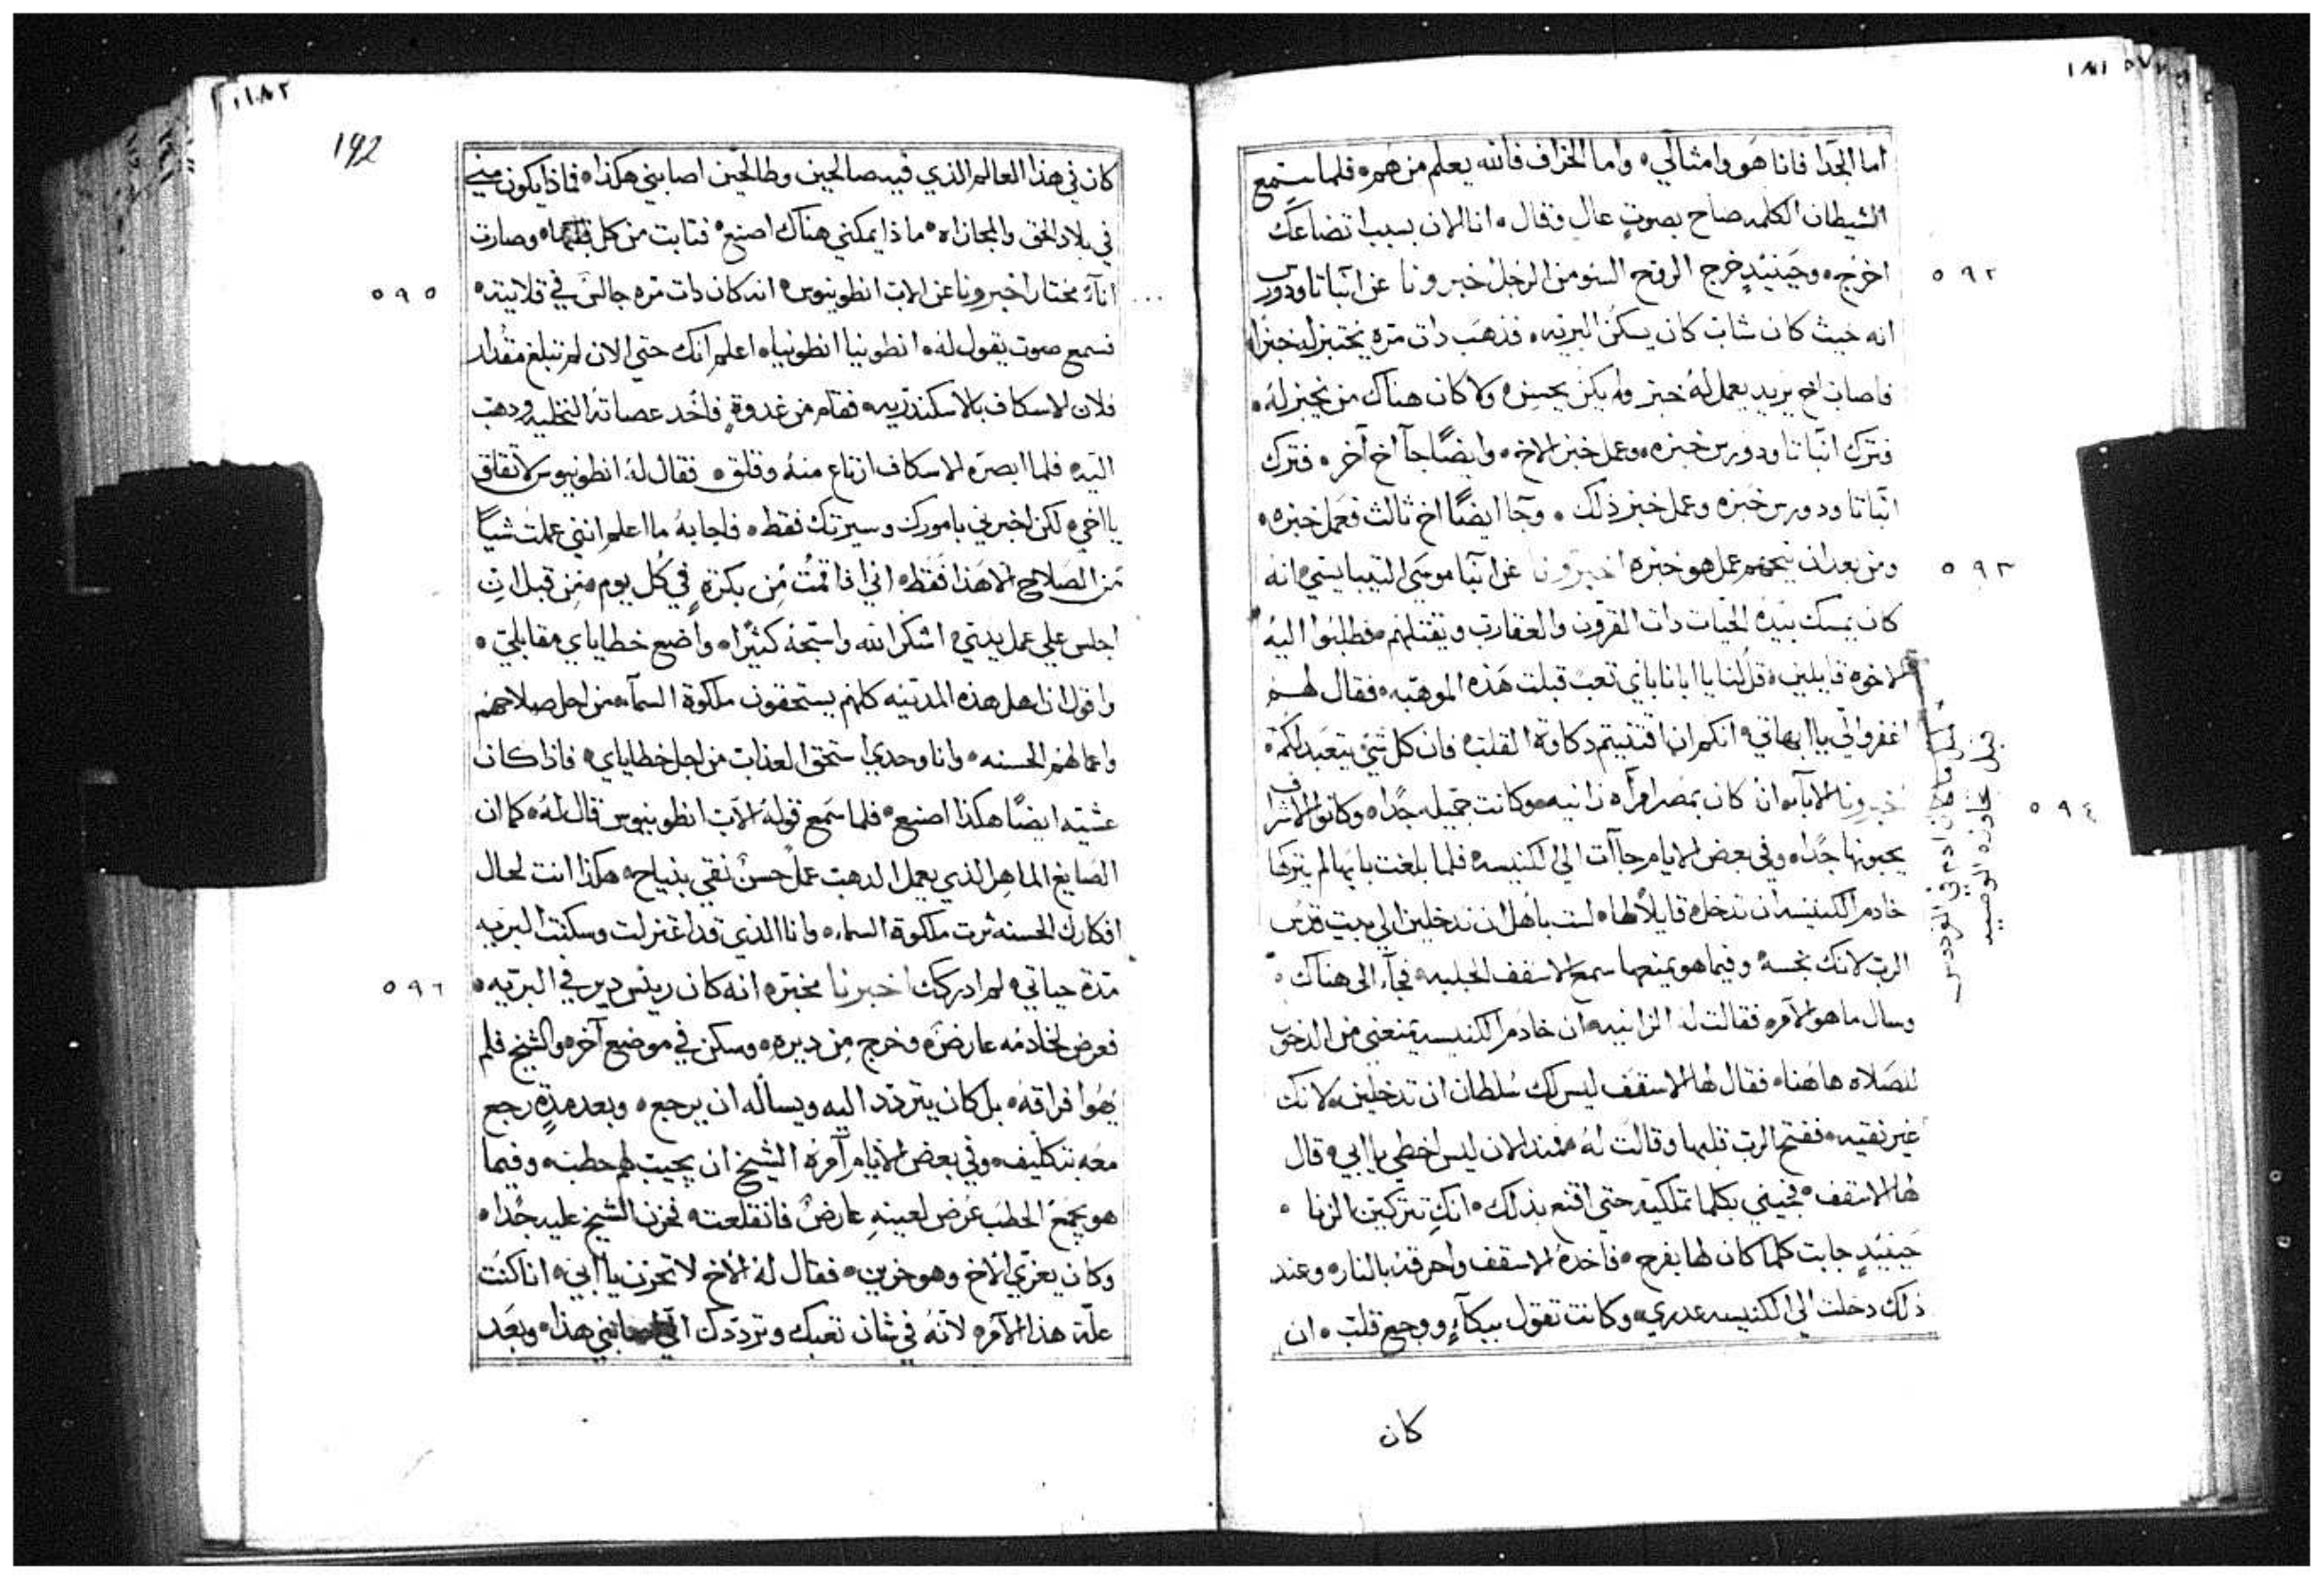 اما الجدا فانا هو وامثالي ه واما الخراف فالله يعلم من هم ه فلما سمع
الشيطان الكلمه صاح بصوتٍ عال وقال ه انا الان بسبب اتضاعك
اخرج ه وحينيدٍ خرج الروح السو من الرجل خبرونا عن انبا تاودورس
٥٩٢
انه حيث كان شاب كان يسكن البريه ه فذهب دات مره يختبز له خبزًا
فاصاب اخ يريد يعمل له خبز ولم يكن يحسن ه ولا كان هناك من يخبز له ه
فترك انبا تاودورس خبزه ه وعمل خبز الاخ ه وايضًا جآ اخ آخر ه فترك
انبا تاودورس خبزه وعمل خبز ذلك ه وجا ايضًا اخ ثالث فعمل خبزه ه
ومن بعد ان نيحهم عمل هو خبزه اخبرونا عن انبا موسى الليبيايسي ه انه
٥٩٣
كان يمسك بيده الحيات دات القرون والعقارب ويقتلهم ه فطلبوا اليه
الاخوه قايلين ه قل لنا يا ابانا باي تعب قبلت هذه الموهبه ه فقال لهم
اغفروا لي يا ابهاتي ه انكم ان اقتنيتم دكاوة القلب ه فان كل شي يتعبد لكم ه
مثل ما كان ادم في الفردوس
قبل تجاوزه الوصيه
خبرونا الابآء ان كان بمصر امرأه زانيه ه وكانت جميله جدًا ه وكانوا الاشراف
٥٩٤
يحبونها جدًا ه وفي بعض الايام جاآت الى الكنيسه ه فلما بلغت بابها لم يتركها
خادم الكنيسه أن تدخل ه قايلًا لها ه لست باهل ان تدخلين الى بيت قدس
الرب لانك نجسه ه وفيما هو يمنعها سمع الاسقف الجلبه ه فجآء الى هناك ه
وسال ما هو الامر ه فقالت له الزانيه ه ان خادم الكنيسه يمنعني من الدخول
للصلاه هاهنا ه فقال لها الاسقف ليس لك سُلطان ان تدخلين ه لانك
غير نقيه ه ففتح الرب قلبها وقالت له ه منذ الان ليس اخطي يا ابي ه قال
لها الاسقف ه تجيبني بكلما تملكيه حتى اقنع بذلك ه انكِ تتركين الزنا ه
حينيدٍ جابت كلما كان لها بفرح ه فاخده الاسقف واحرقه بالنار ه وعند
ذلك دخلت الى الكنيسه عدري ه وكانت تقول ببكآءٍ ووجع قلب ه ان
كان
192
كان في هذا العالم الذي فيه صالحين وطالحين اصابني هكذا ه فماذا يكون مني
في بلاد الحق والمجازاه ه ماذا يمكني هناك اصنع ه فتابت من كل قلبها ه وصارت
انآء مختار اخبرونا عن الاب انطونيوس ه انه كان دات مره جالس في قلايته ه
٥٩٥
فسمع صوت يقول له ه انطونيا انطونيا ه اعلم انك حتى الان لم تبلغ مقدار
فلان الاسكاف بالاسكندريه ه فقام من غدوةٍ فاخد عصاته النخليه ودهب
اليه ه فلما ابصره الاسكاف ارتاع منه وقلق ه فقال له انطونيوس لا تقلق
يا اخي ه لكن اخبرني بامورك وسيرتك فقط ه فاجابه ما اعلم انني عملت شياً
من الصلاح الا هذا فقط ه اني اذا قمت من بكرةٍ في كل يوم ه من قبل ان
اجلس علي عمل يدي ه اشكر الله واسبحه كثيرًا ه واضع خطاياي مقابلتي ه
واقول ان اهل هذه المدينه كلهم يستحقون ملكوة السمآء ه من اجل صلاحهم
واعمالهم الحسنه ه وانا وحدي استحق العذاب من اجل خطاياي ه فاذا كان
عشيه ايضًا هكذا اصنع ه فلما سمع قوله الاب انطونيوس قال له ه كما ان
الصايغ الماهر الذي يعمل الدهب عملٌ حسنٌ نقي بنياح ه هكذا انت لحال
افكارك الحسنه ترت ملكوة السماء ه وانا الذي قد اعتزلت وسكنت البريه
مدة حياتي ه لم ادركك اخبرنا مخبر ه انه كان ريس دير في البريه ه
٥٩٦
فعرض لخادمه عارض ه وخرج من ديره ه وسكن في موضع آخر ه والشيخ فلم
يهوا فراقه ه بل كان يتردد اليه ويساله ان يرجع ه وبعد مدةٍ رجع
معه بتكليف ه وفي بعض الايام امره الشيخ ان يجيب لهم حطب ه وفيما
هو يجمع الحطب عرض لعينهِ عارضٌ فانقلعت ه فحزن الشيخ عليه جدًا ه
وكان يعزي الاخ وهو حزين ه فقال له الاخ لا تحزن يا ابي ه انا كنت
علة هذا الامر ه لانه في شان تعبك وترددك الي اصابني هذا ه وبعد